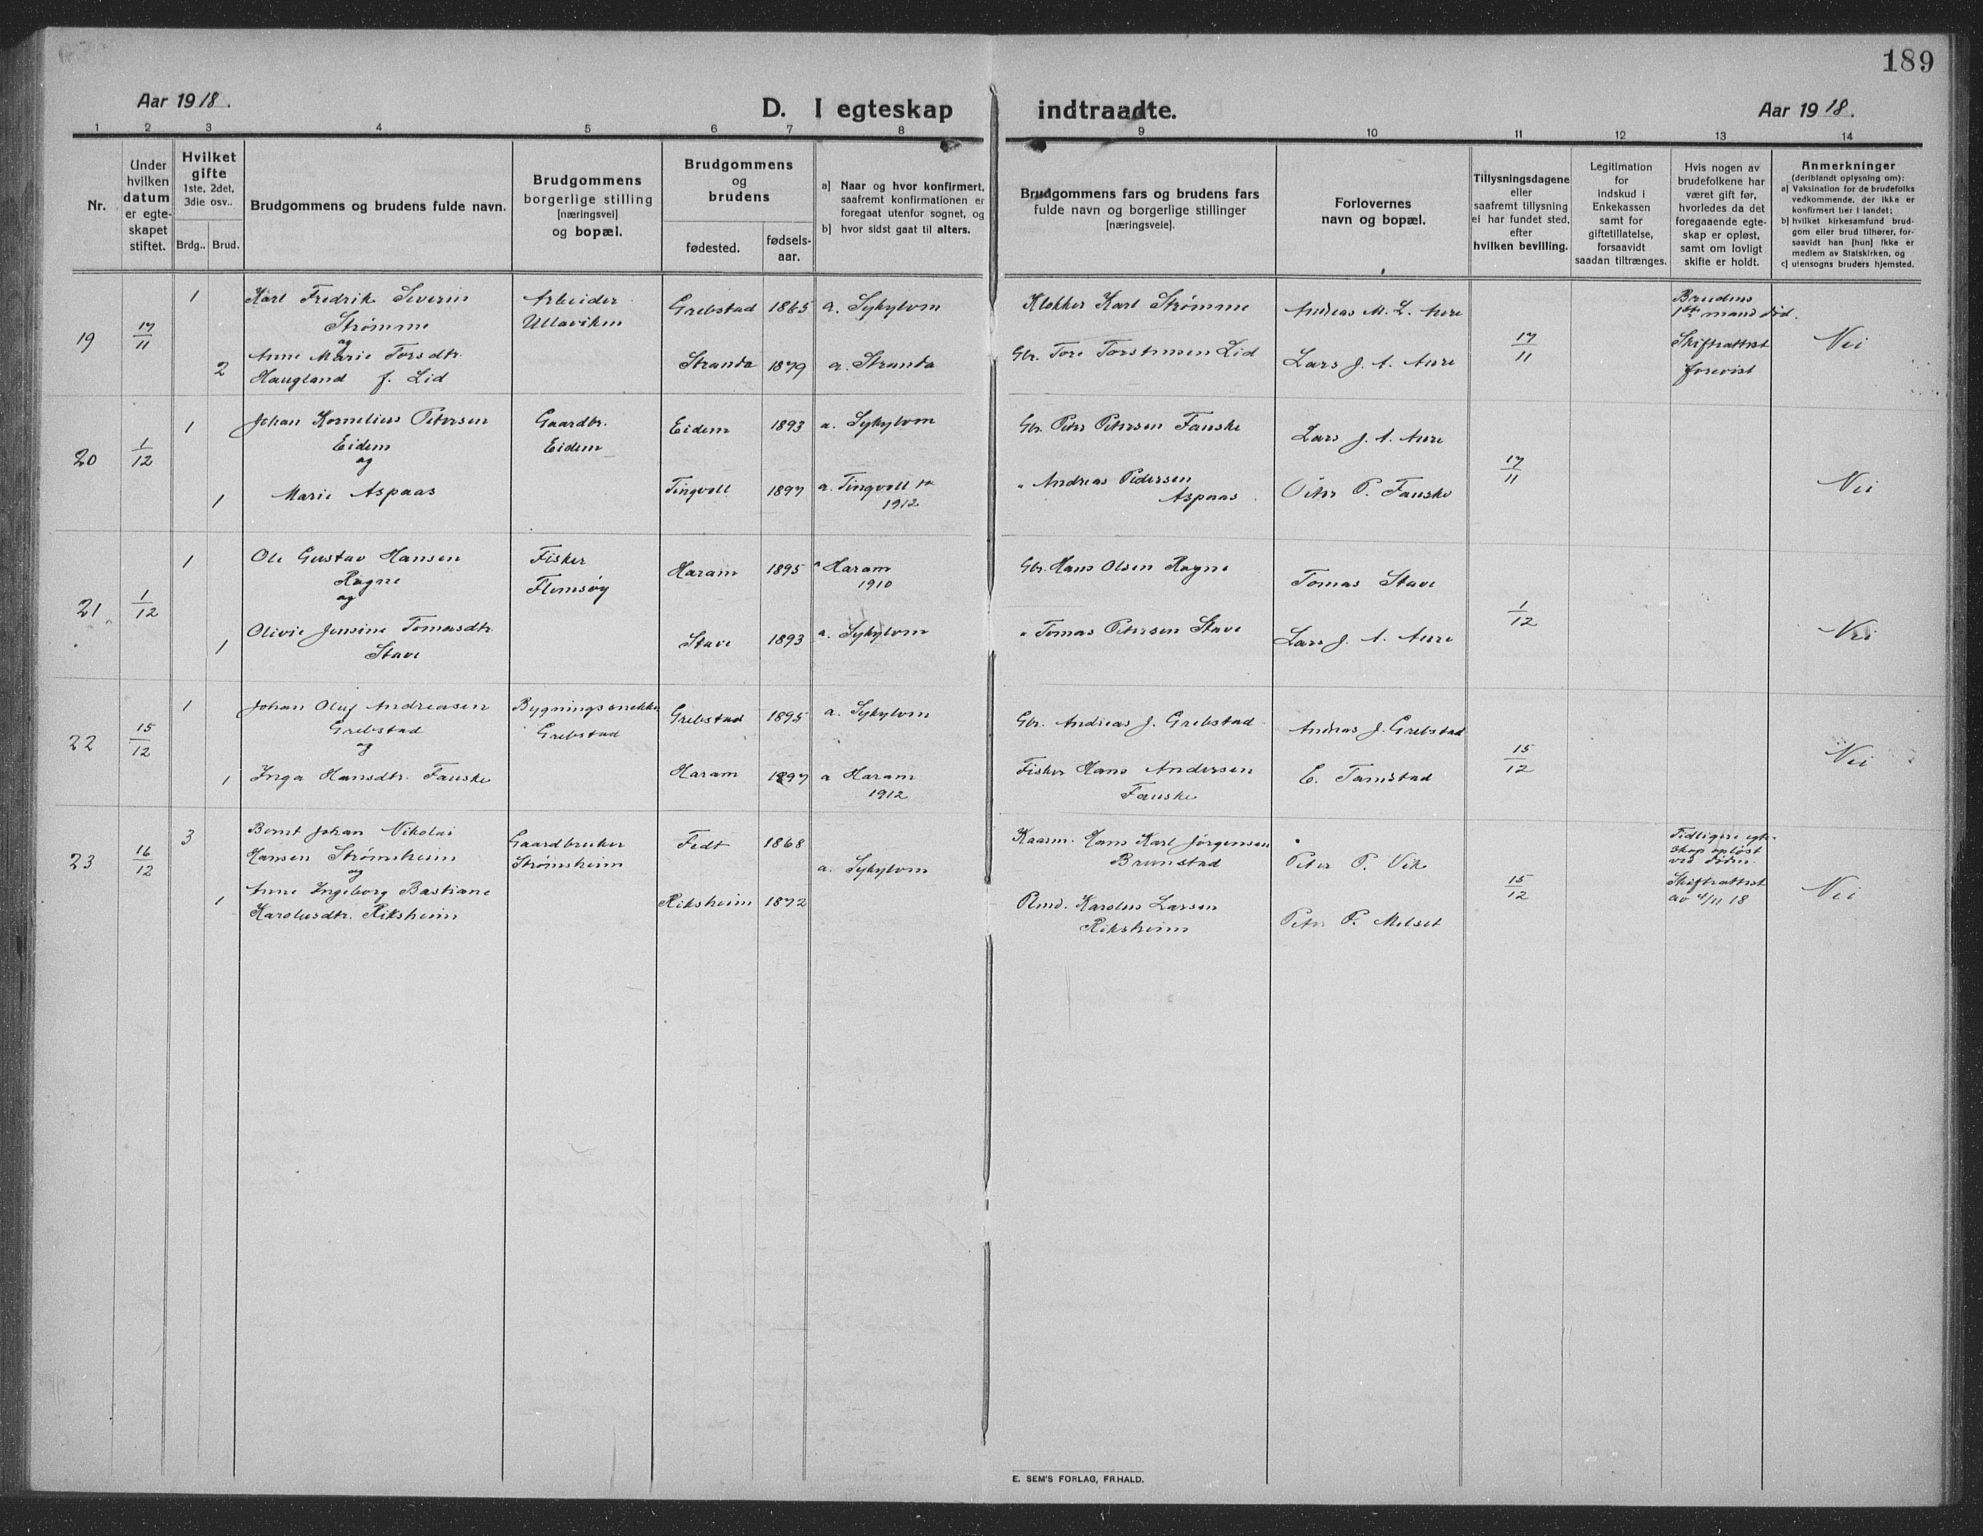 189
Aar 1918.
D. I egteskap indtraadte.
Aar 1918.
1 2 3 4 5 6 7 8 9 10 11 12 13 14
Nr.
Under
hvilken
datum
er egte-
skapet
stiftet.
Hvilket
gifte
1ste, 2det,
3die osv..
Brdg..
Brud.
Brudgommens og brudens fulde navn.
Brudgommens
borgerlige stilling
[næringsvei]
og bopæl.
Brudgommens
og
brudens
fødested.
fødsels-
aar.
a] Naar og hvor konfirmert,
saafremt konfirmationen er
foregaat utenfor sognet, og
b] hvor sidst gaat til alters.
Brudgommens fars og brudens fars
fulde navn og borgerlige stillinger
[næringsveie].
Forlovernes
navn og bopæl.
Tillysningsdagene
eller
saafremt tillysning
ei har fundet sted,
efter
hvilken bevilling.
Legitimation
for
indskud i
Enkekassen
samt for
giftetillatelse,
forsaavidt
saadan tiltrænges.
Hvis nogen av
brudefolkene har
været gift før,
hvorledes da det
foregaaende egte-
skap er opløst,
samt om lovligt
skifte er holdt.
Anmerkninger
(deriblandt oplysning om):
a] Vaksination for de brudefolks
vedkommende, der ikke er
konfirmert her i landet;
b] hvilket kirkesamfund brud-
gom eller brud tilhører, for-
saavidt han [hun] ikke er
medlem av Statskirken, og
c] utensogns bruders hjemsted.
19
17/11
1
Karl Fredrik Severin
Strømme
og
2
Anne Marie Torsdtr.
Haugland f. Lid
Arbeider
Ullaviken
Grebstad 1865 a. Sykylvm
Stranda 1879 a. Stranda
Klokker Karl Strømme
Gbr. Tore Torstensen Lid
Andreas M. L. Aure
Lars J. A. Aure
17/11
Brudens
1ste mand død.
Skifteattest
forevist
Nei
20
1/12
1
Johan Kornelius Petersen
Eidem
og
1
Marie Aspaas
Gaardbr.
Eidem
Eidem 1893 a. Sykylvm
Tingvoll 1897 a. Tingvoll
1912
Gbr. Peter Petersen Fauske
" Andreas Pedersen
Aspaas
Lars J. A. Aure
Peter P. Fauske
17/11
Nei
21
1/12
1
Ole Gustav Hansen
Rogne
og
1
Olivie Jensine Tomasdtr.
Stave
Fisker
Flemsøy
Haram 1895 a Haram
1910
Stave 1893 a. Sykylvm
Gbr. Hans Olsen Rogne
" Tomas Petersen Stave
Tomas Stave
Lars J. A. Aure
1/12
Nei
22
15/12
1
Johan Oluf Andreasen
Grebstad
og
1
Inga Hansdtr. Fauske
Bygningssnekker
Grebstad
Grebstad 1895 a. Sykylvm
Haram 1897 a Haram
1912
Gbr. Andreas J. Grebstad
Fisker Hans Andersen
Fauske
Andreas J. Grebstad
E. Tamstad
15/12
Nei
23
16/12
3
Bernt Johan Nikolai
Hansen Strømsheim
og
1
Anne Ingeborg Bastiane
Karolusdtr. Riksheim
Gaardbruker
Strømsheim
Fedt 1868
a. Sykylvm
Riksheim 1872
Kaarm. Hans Karl Jørgensen
Brunstad
Karolus Larsen
Riksheim
Peter P. Vik
Peter P. Melset
15/12
Tidligere egte-
skap opløst
ved døden.
Skifteattest
av 4/11 18
Nei
E. SEM'S FORLAG, FR.HALD.